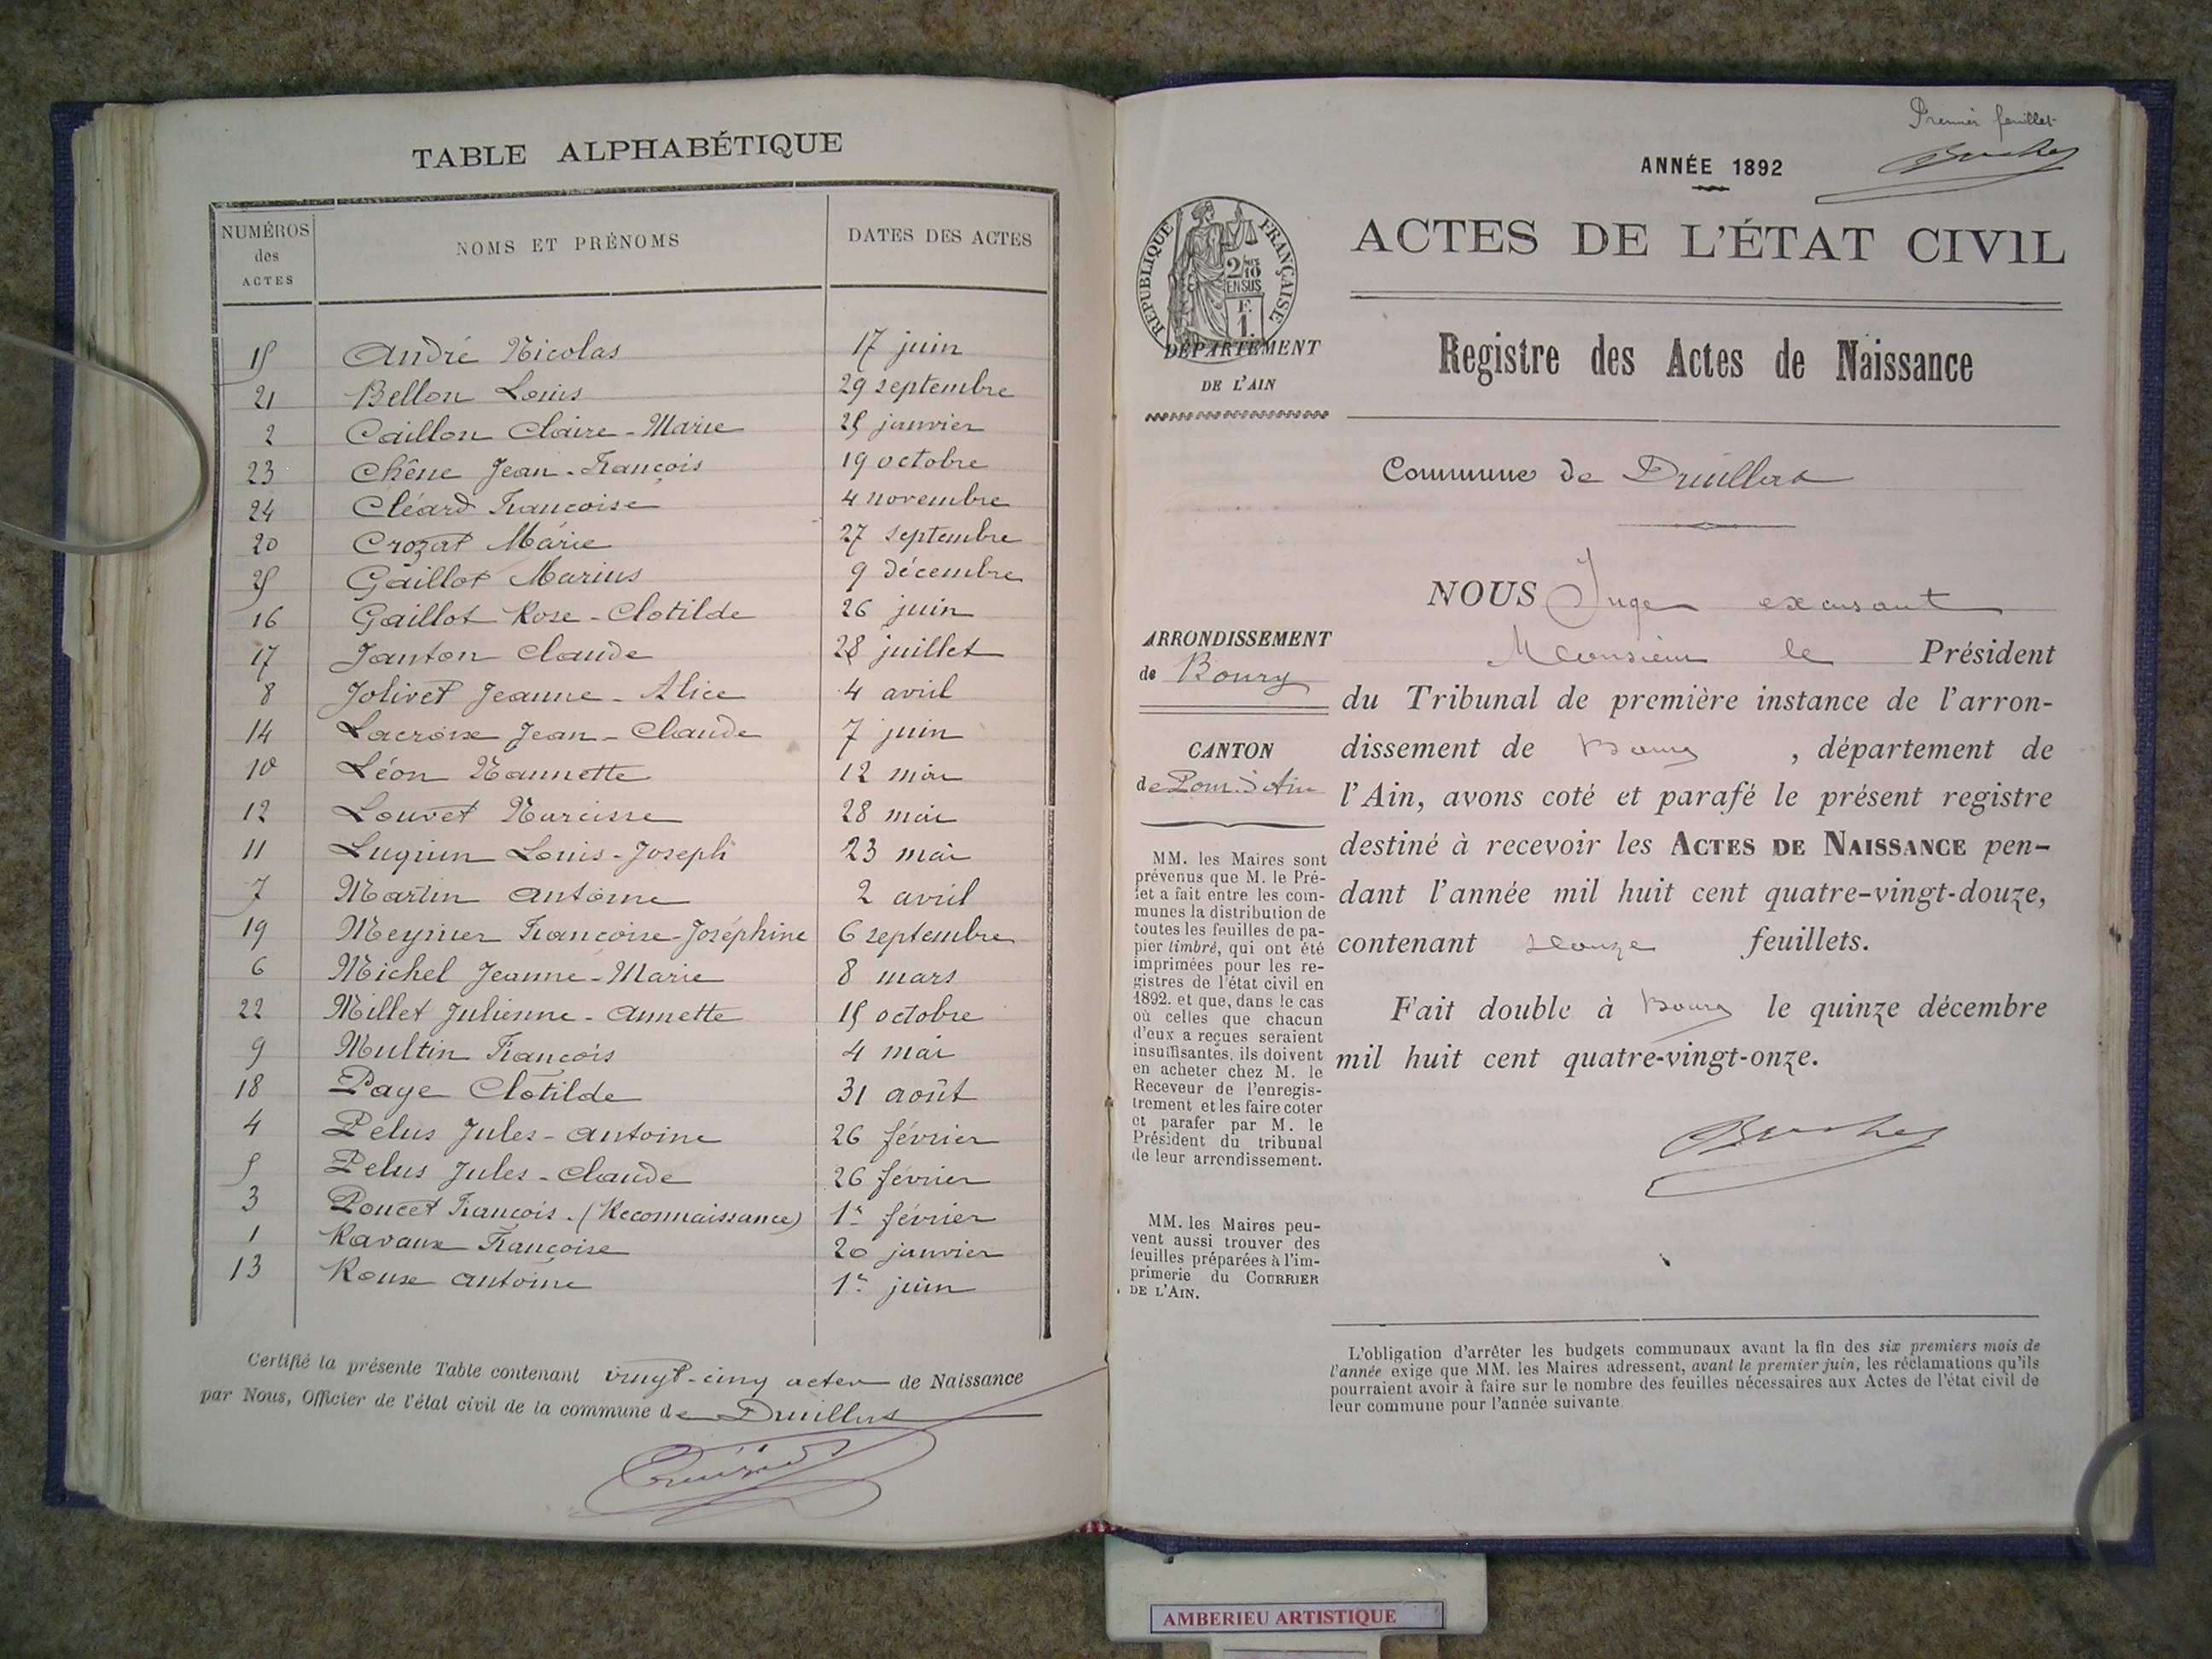 TABLE ALPHABÉTIQUE
NUMÉROS des ACTES NOMS ET PRÉNOMS DATES DES ACTES
15 André Nicolas 17 juin
21 Bellon Louis 29 septembre
2 Caillon Claire-Marie 25 janvier
23 Chêne Jean-François 19 octobre
24 Cléard Françoise 4 novembre
20 Crozat Marie 27 septembre
25 Gaillot Marius 9 décembre
16 Gaillot Rose-Clotilde 26 juin
17 Janton Claude 28 juillet
8 Jolivet Jeanne-Alice 4 avril
14 Lacroix Jean-Claude 7 juin
10 Léon Nannette 12 mai
12 Louvet Narcisse 28 mai
11 Lugrin Louis-Joseph 23 mai
7 Martin Antoine 2 avril
19 Meynier Françoise-Joséphine 6 septembre
6 Michel Jeanne-Marie 8 mars
22 Millet Julienne-Annette 15 octobre
9 Multin François 4 mai
18 Paye Clotilde 31 août
4 Pelus Jules-Antoine 26 février
5 Pelus Jules-Claude 26 février
3 Poncet François. (Reconnaissance) 1er février
1 Ravaux Françoise 20 janvier
13 Roux Antoine 1er juin
Certifié la présente Table contenant vingt-cinq actes de Naissance
par Nous, Officier de l'état civil de la commune de Druillat
Premier feuillet
ANNÉE 1892
RÉPUBLIQUE FRANÇAISE
2/10 EN SUS
F. 1.
ACTES DE L'ÉTAT CIVIL
DÉPARTEMENT
DE L'AIN
Registre des Actes de Naissance
Commune de Druillat
ARRONDISSEMENT
de Bourg
CANTON
de Pont-d'Ain
MM. les Maires sont
prévenus que M. le Pré-
fet a fait entre les com-
munes la distribution de
toutes les feuilles de pa-
pier timbré, qui ont été
imprimées pour les re-
gistres de l'état civil en
1892. et que, dans le cas
où celles que chacun
d'eux a reçues seraient
insuffisantes, ils doivent
en acheter chez M. le
Receveur de l'enregis-
trement et les faire coter
et parafer par M. le
Président du tribunal
de leur arrondissement.
MM. les Maires peu-
vent aussi trouver des
feuilles préparées à l'im-
primerie du COURRIER
DE L'AIN.
NOUS Juge excusant
Monsieur le Président
du Tribunal de première instance de l'arron-
dissement de Bourg, département de
l'Ain, avons coté et parafé le présent registre
destiné à recevoir les ACTES DE NAISSANCE pen-
dant l'année mil huit cent quatre-vingt-douze,
contenant feuillets.
Fait double à Bourg le quinze décembre
mil huit cent quatre-vingt-onze.
L'obligation d'arrêter les budgets communaux avant la fin des six premiers mois de
l'année exige que MM. les Maires adressent, avant le premier juin, les réclamations qu'ils
pourraient avoir à faire sur le nombre des feuilles nécessaires aux Actes de l'état civil de
leur commune pour l'année suivante.
AMBERIEU ARTISTIQUE